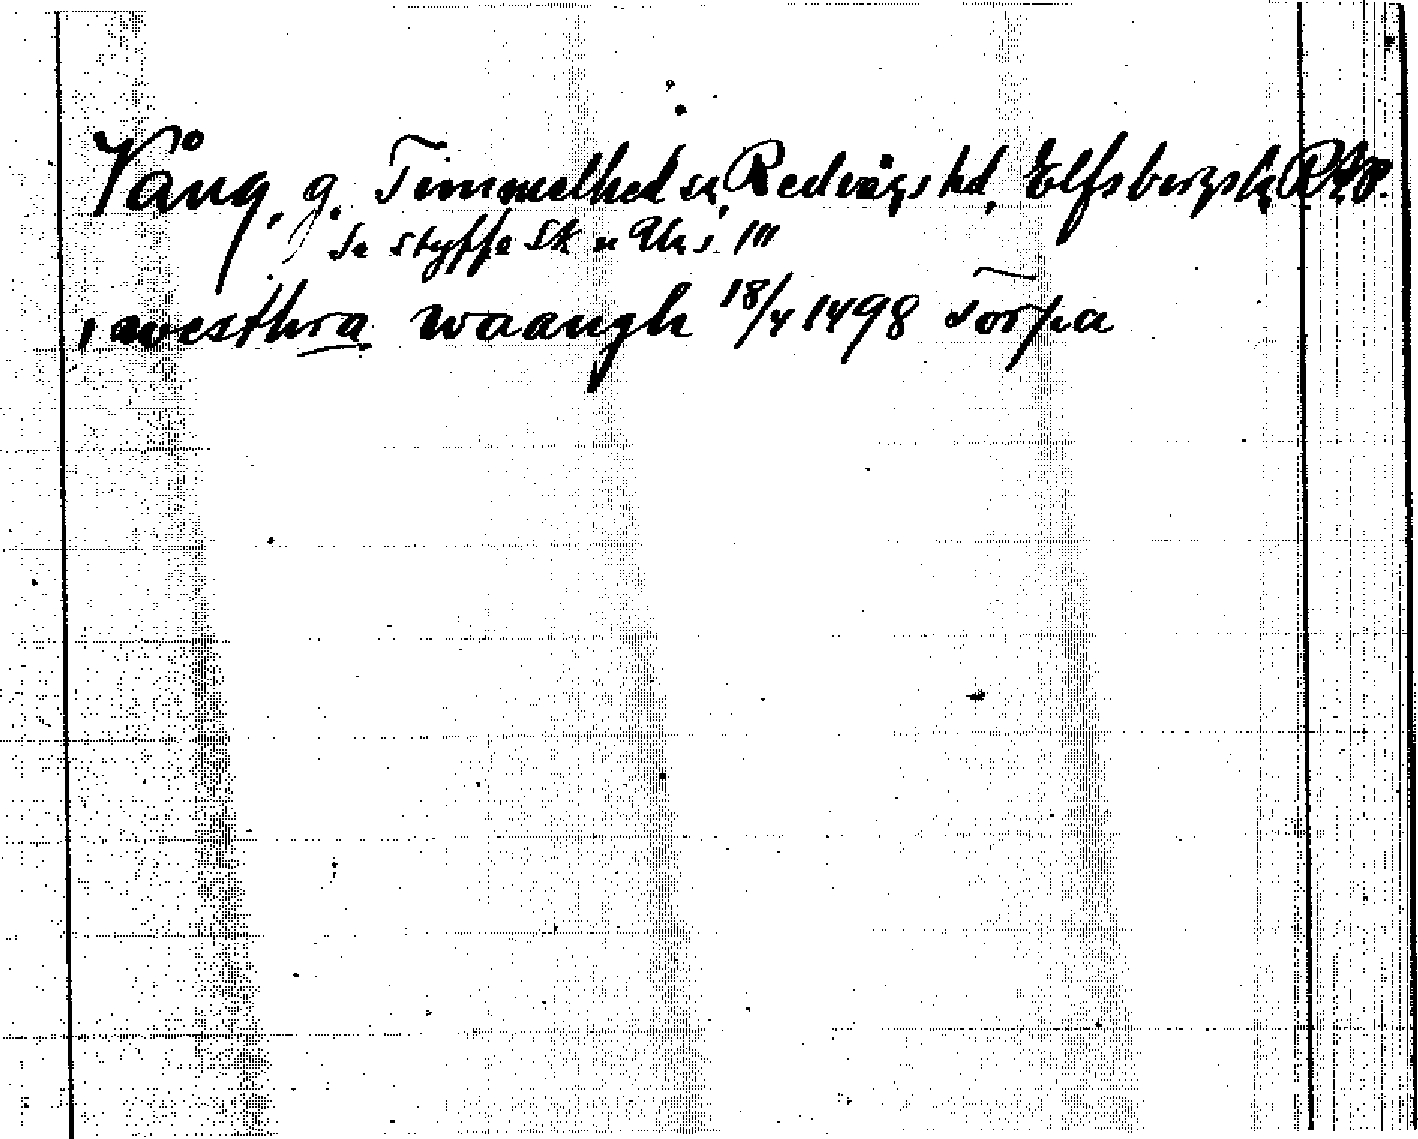 Vång, g. Timmelhed sn, Redvägs hd, Elfsborgs l.
Se Styffe Sk u Un s 111
i westhra waangh 18/4 1498 Torpa